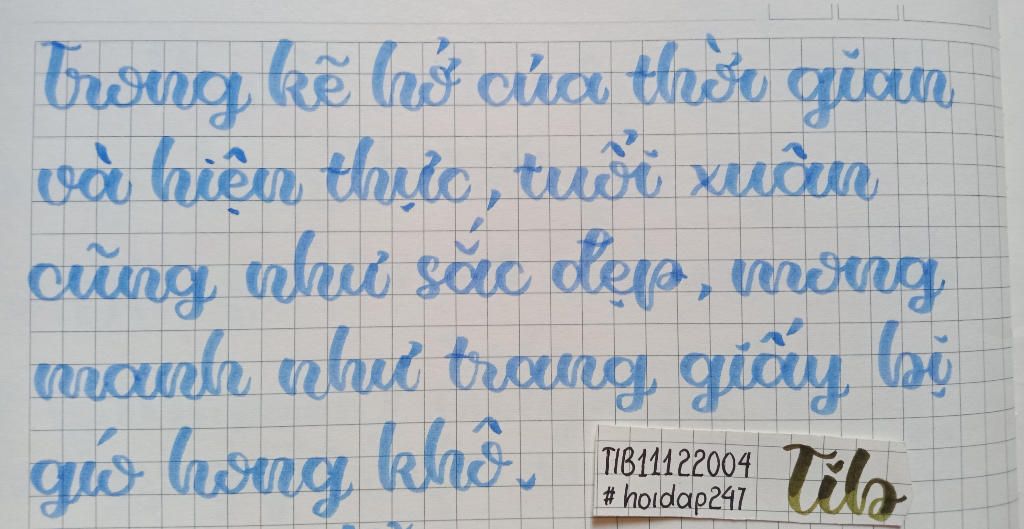 Trong kẽ hở của thời gian
và hiện thực, tuổi xuân
cũng như sắc đẹp, mong
manh như trang giấy bị
gió hong khô.
TIB11122004
#hoidap247
Tib